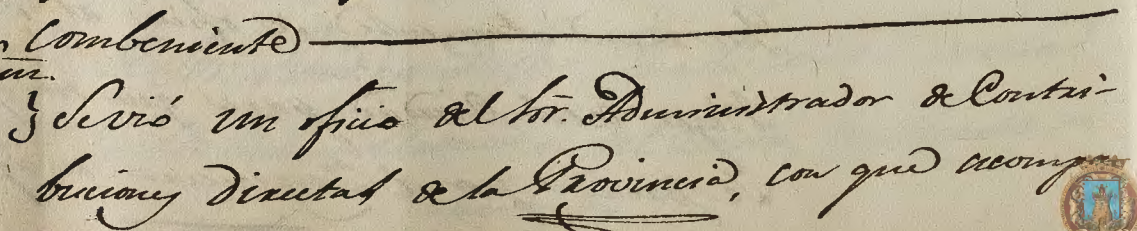 combeniente
Se vió un oficio del Sor. Administrador de Contri-
buciones Directas de la Provincia, con que acompa